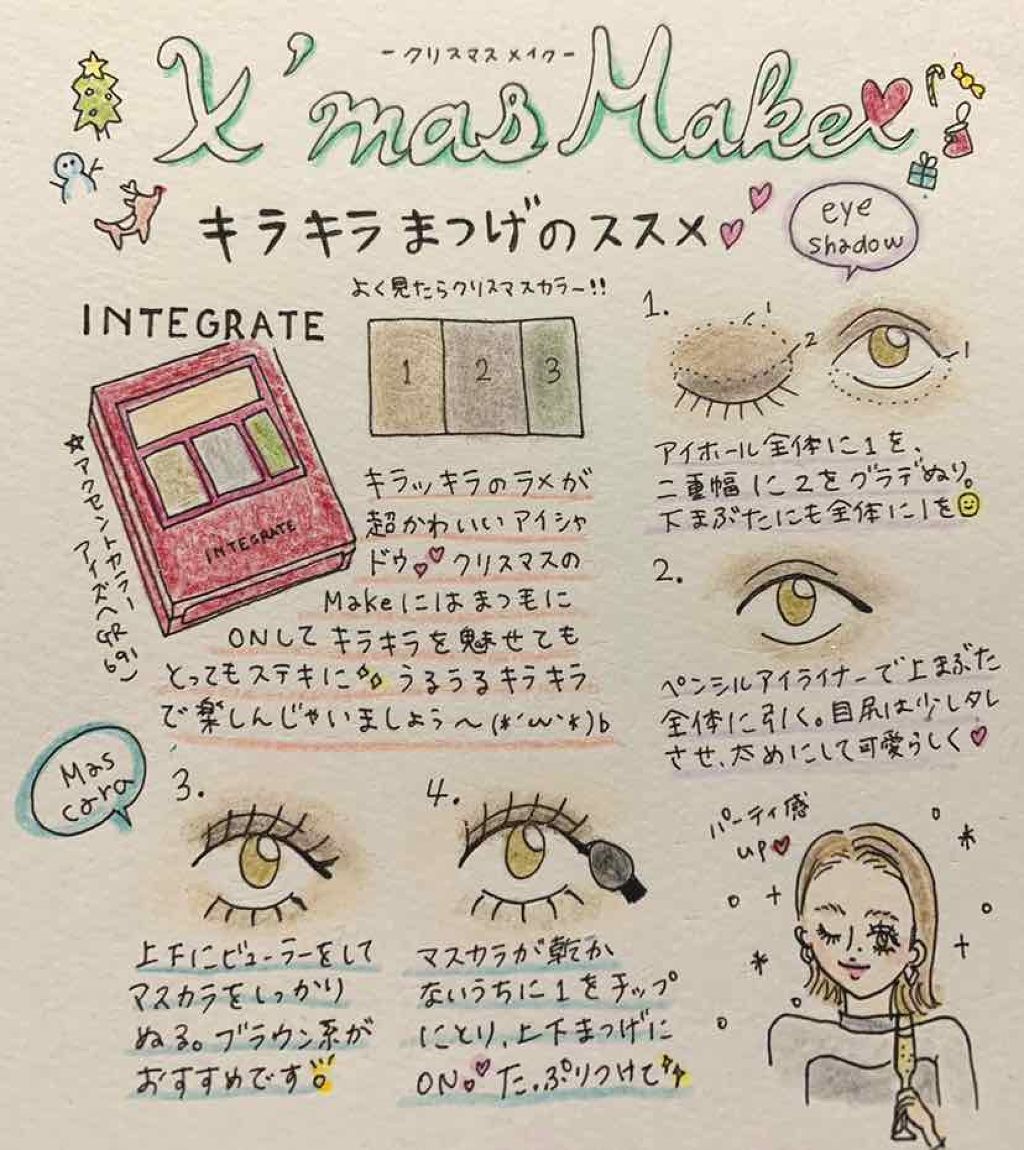 -クリスマスメイク-
X'mas Make
キラキラまつげのススメ
eye
shadow
よく見たらクリスマスカラー!!
INTEGRATE
1
2
3
INTEGRATE
☆アクセントカラー
アイズへGR
691
キラッキラのラメが
超かわいいアイシャ
ドウ クリスマスの
Makeにはまつ毛に
ONしてキラキラを魅せても
とってもステキに うるうるキラキラ
で楽しんじゃいましょう〜(*´ω`*)b
1.
1
2
1
アイホール全体に1を、
二重幅に2をグラデぬり。
下まぶたにも全体に1を
2.
ペンシルアイライナーで上まぶた
全体に引く。目尻は少しタレ
させ、太めにして可愛らしく
Mas
cara
3.
上下にビューラーをして
マスカラをしっかり
ぬる。ブラウン系が
おすすめです
4.
マスカラが乾か
ないうちに1をチップ
にとり、上下まつげに
ON たっぷりつけて
パーティ感
up